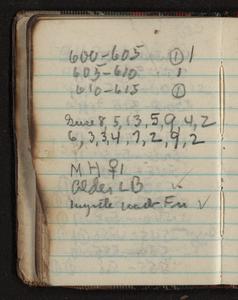 600-605 ① 1
605-610 1
610-615 ①
8, 5, 13, 5, 9, 4, 2
6, 3, 3, 4, 7, 2, 9, 2
M H ♀ 1
Alder LB ✓
myrtle ✓